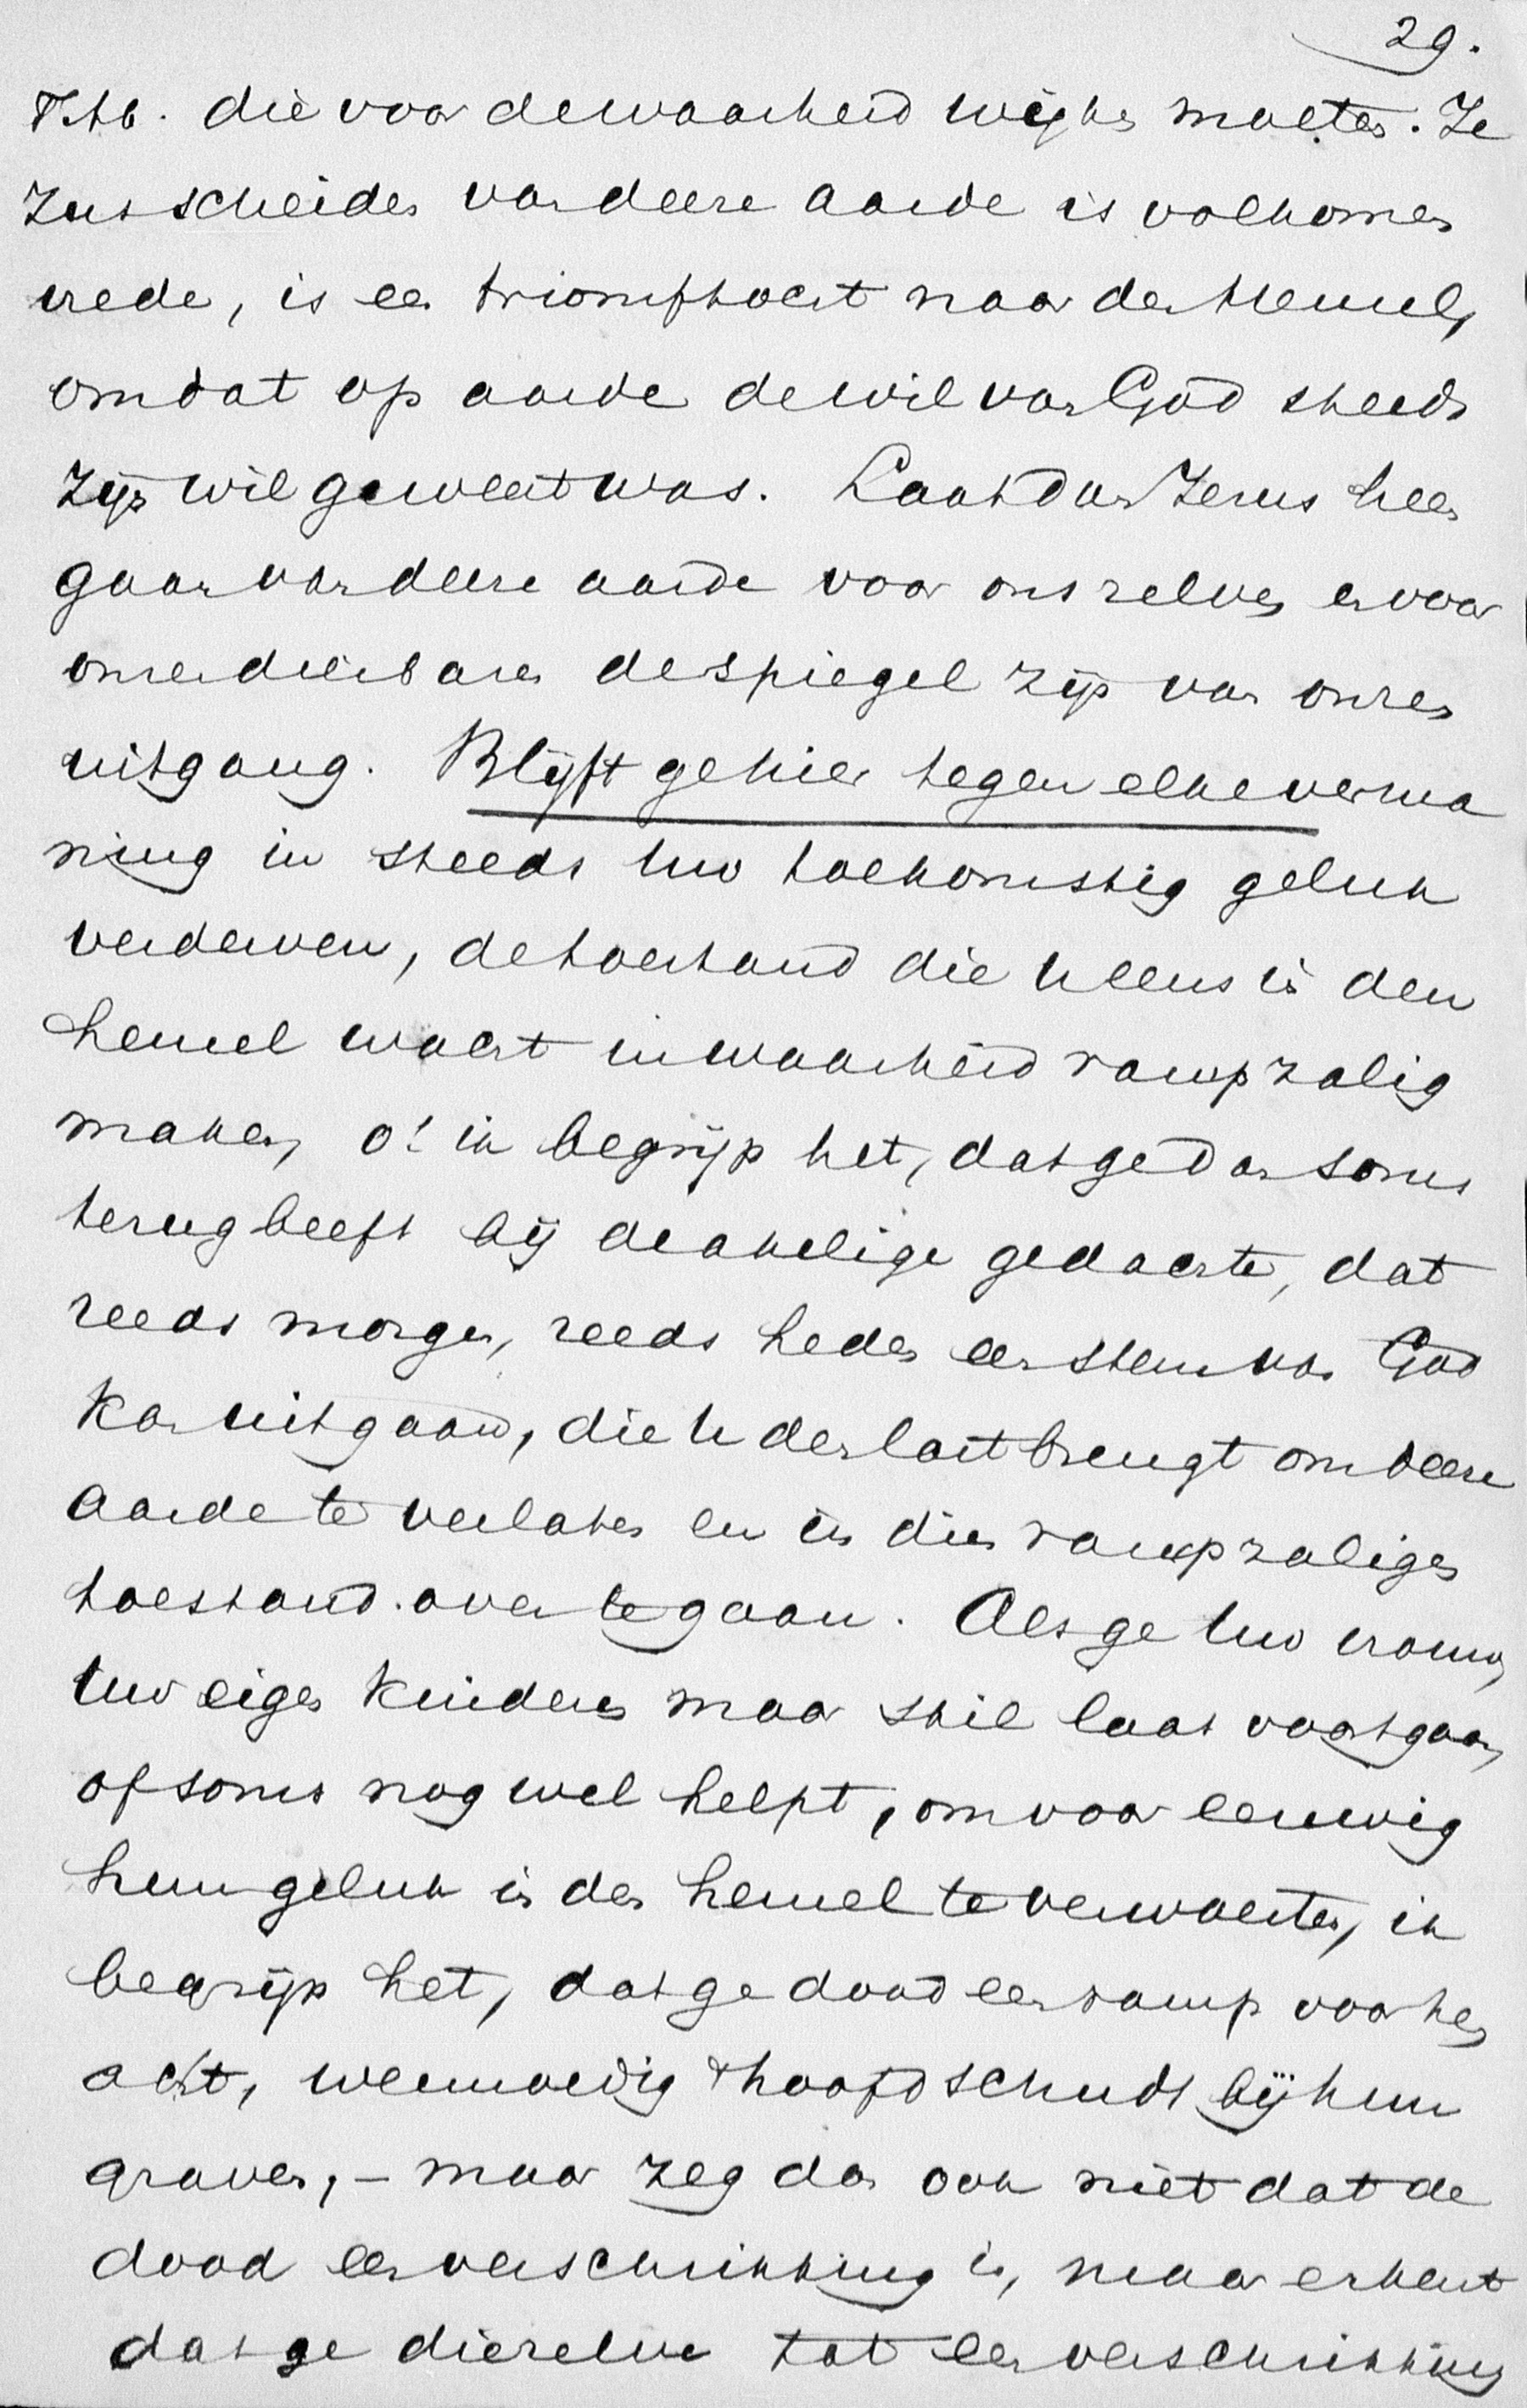 29.
T.t.b. die voor de waarheid wijken moeten. Je
zus scheiden van deere aarde is volkomen
vrede, is een triomftocht naar den Hemel,
omdat op aarde de wil van God steeds
zijn wil geweest was. Laat dan Jezus heen
gaan van deeze aarde voor ons zelven en voor
onze dierbaren de spiegel zijn van onzen
uitgang. Blijft ge hier tegen elke verma
ning in steeds Uw toekomstig geluk
verderven, de toestand die U eens in den
hemel wacht in waarheid rampzalig
maken, o! ik begrijp het, dat ge dan soms
terugbeeft bij de akelige gedachte, dat
reeds morgen, reeds heden een stem van God
kan uitgaan, die U den last brengt om deeze
aarde te verlaten en in dien rampzaligen
toestand over te gaan. Als ge Uw vrouw,
Uw eigen kinderen maar stil laat voortgaan,
of soms nog wel helpt, om voor eeuwig
hun geluk in den hemel te verwoesten, ik
begrijp het, dat ge dood een ramp voor hen
acht, weemoedig 't hoofd schudt bij hun
graven, - maar zeg dan ook niet dat de
dood een verschrikking is, maar erkent
dat ge diezelve tot een verschrikking